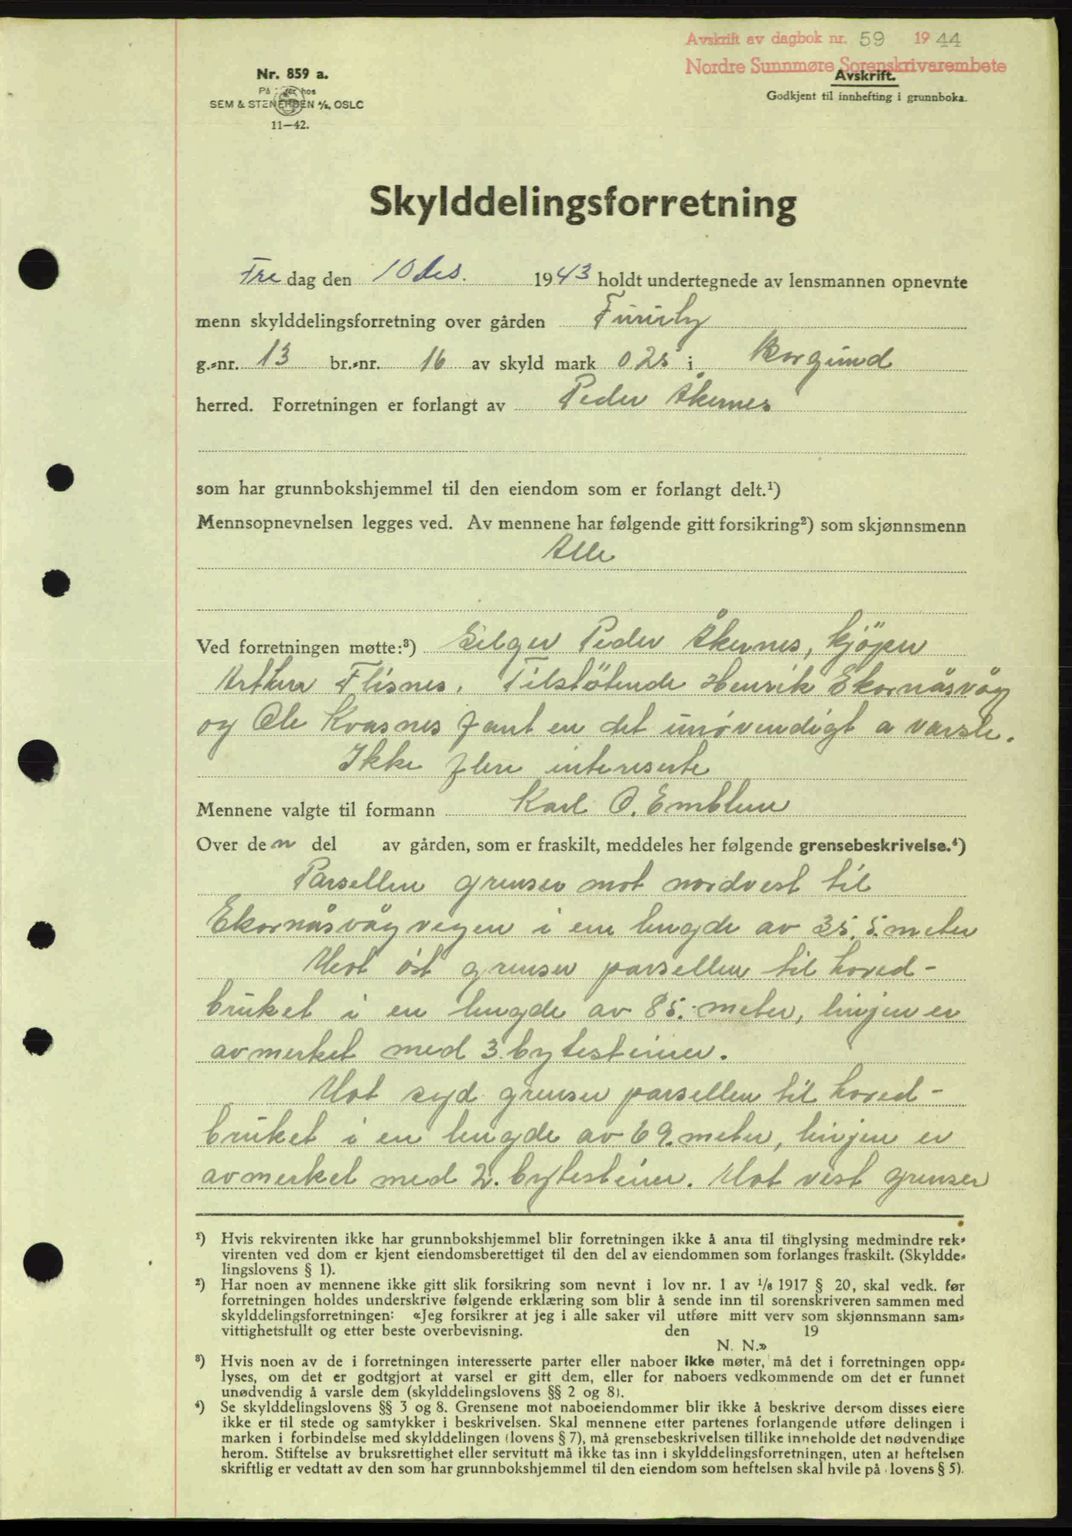 Avskrift av dagbok nr. 59 1944
Nordre Sunnmøre Sorenskrivarembete
Avskrift.
Godkjent til innhefting i grunnboka.
Nr. 859 a.
På lager hos
SEM & STENERSEN A/S, OSLO
11—42.
Skylddelingsforretning
Fredag den 10 des. 1943 holdt undertegnede av lensmannen opnevnte
menn skylddelingsforretning over gården Furuly
g.-nr. 13 br.-nr. 16 av skyld mark 0 25 i Borgund
herred. Forretningen er forlangt av Peder Åkernes
som har grunnbokshjemmel til den eiendom som er forlangt delt.¹)
Mennsopnevnelsen legges ved. Av mennene har følgende gitt forsikring²) som skjønnsmenn
Alle
Ved forretningen møtte:³) Selger Peder Åkernes, kjöper
Arthur Flisnes. Tilstøtende Henrik Ekornåsvåg
og Ole Kvasnes fant en det unøvendigt a varsle.
Ikke flere intereserte
Mennene valgte til formann Karl O. Emblem
Over den del av gården, som er fraskilt, meddeles her følgende grensebeskrivelse.⁴)
Parsellen grenser mot nordvest til
Ekornåsvågvegen i en lengde av 35,5. meter
Mot öst grenser parsellen til hoved-
bruket i en lengde av 85. meter, linjen er
avmerket med 3. bytesteiner.
Mot syd grenser parsellen til hoved-
bruket i en lengde av 69. meter, linjen er
avmerket med 2. bytesteiner. Mot vest grenser
¹) Hvis rekvirenten ikke har grunnbokshjemmel blir forretningen ikke å anta til tinglysing medmindre rek-
virenten ved dom er kjent eiendomsberettiget til den del av eiendommen som forlanges fraskilt. (Skyldde-
lingslovens § 1).
²) Har noen av mennene ikke gitt slik forsikring som nevnt i lov nr. 1 av ¹/₆ 1917 § 20, skal vedk. før
forretningen holdes underskrive følgende erklæring som blir å sende inn til sorenskriveren sammen med
skylddelingsforretningen: «Jeg forsikrer at jeg i alle saker vil utføre mitt verv som skjønnsmann sam-
vittighetsfullt og etter beste overbevisning. den 19
N. N.»
³) Hvis noen av de i forretningen interesserte parter eller naboer ikke møter, må det i forretningen opp-
lyses, om det er godtgjort at varsel er gitt dem, eller for naboers vedkommende om det er funnet
unødvendig å varsle dem (skylddelingslovens §§ 2 og 8).
⁴) Se skylddelingslovens §§ 3 og 8. Grensene mot naboeiendommer blir ikke å beskrive dersom disses eiere
ikke er til stede og samtykker i beskrivelsen. Skal mennene etter partenes forlangende utføre delingen i
marken i forbindelse med skylddelingen (lovens § 7), må grensebeskrivelsen tillike inneholde det nødvendige
herom. Stiftelse av bruksrettighet eller servitutt må ikke tas inn i skylddelingsforretningen, uten at heftelsen
skriftlig er vedtatt av den som har grunnbokshjemmel til den eiendom som heftelsen skal hvile på (lovens § 5).